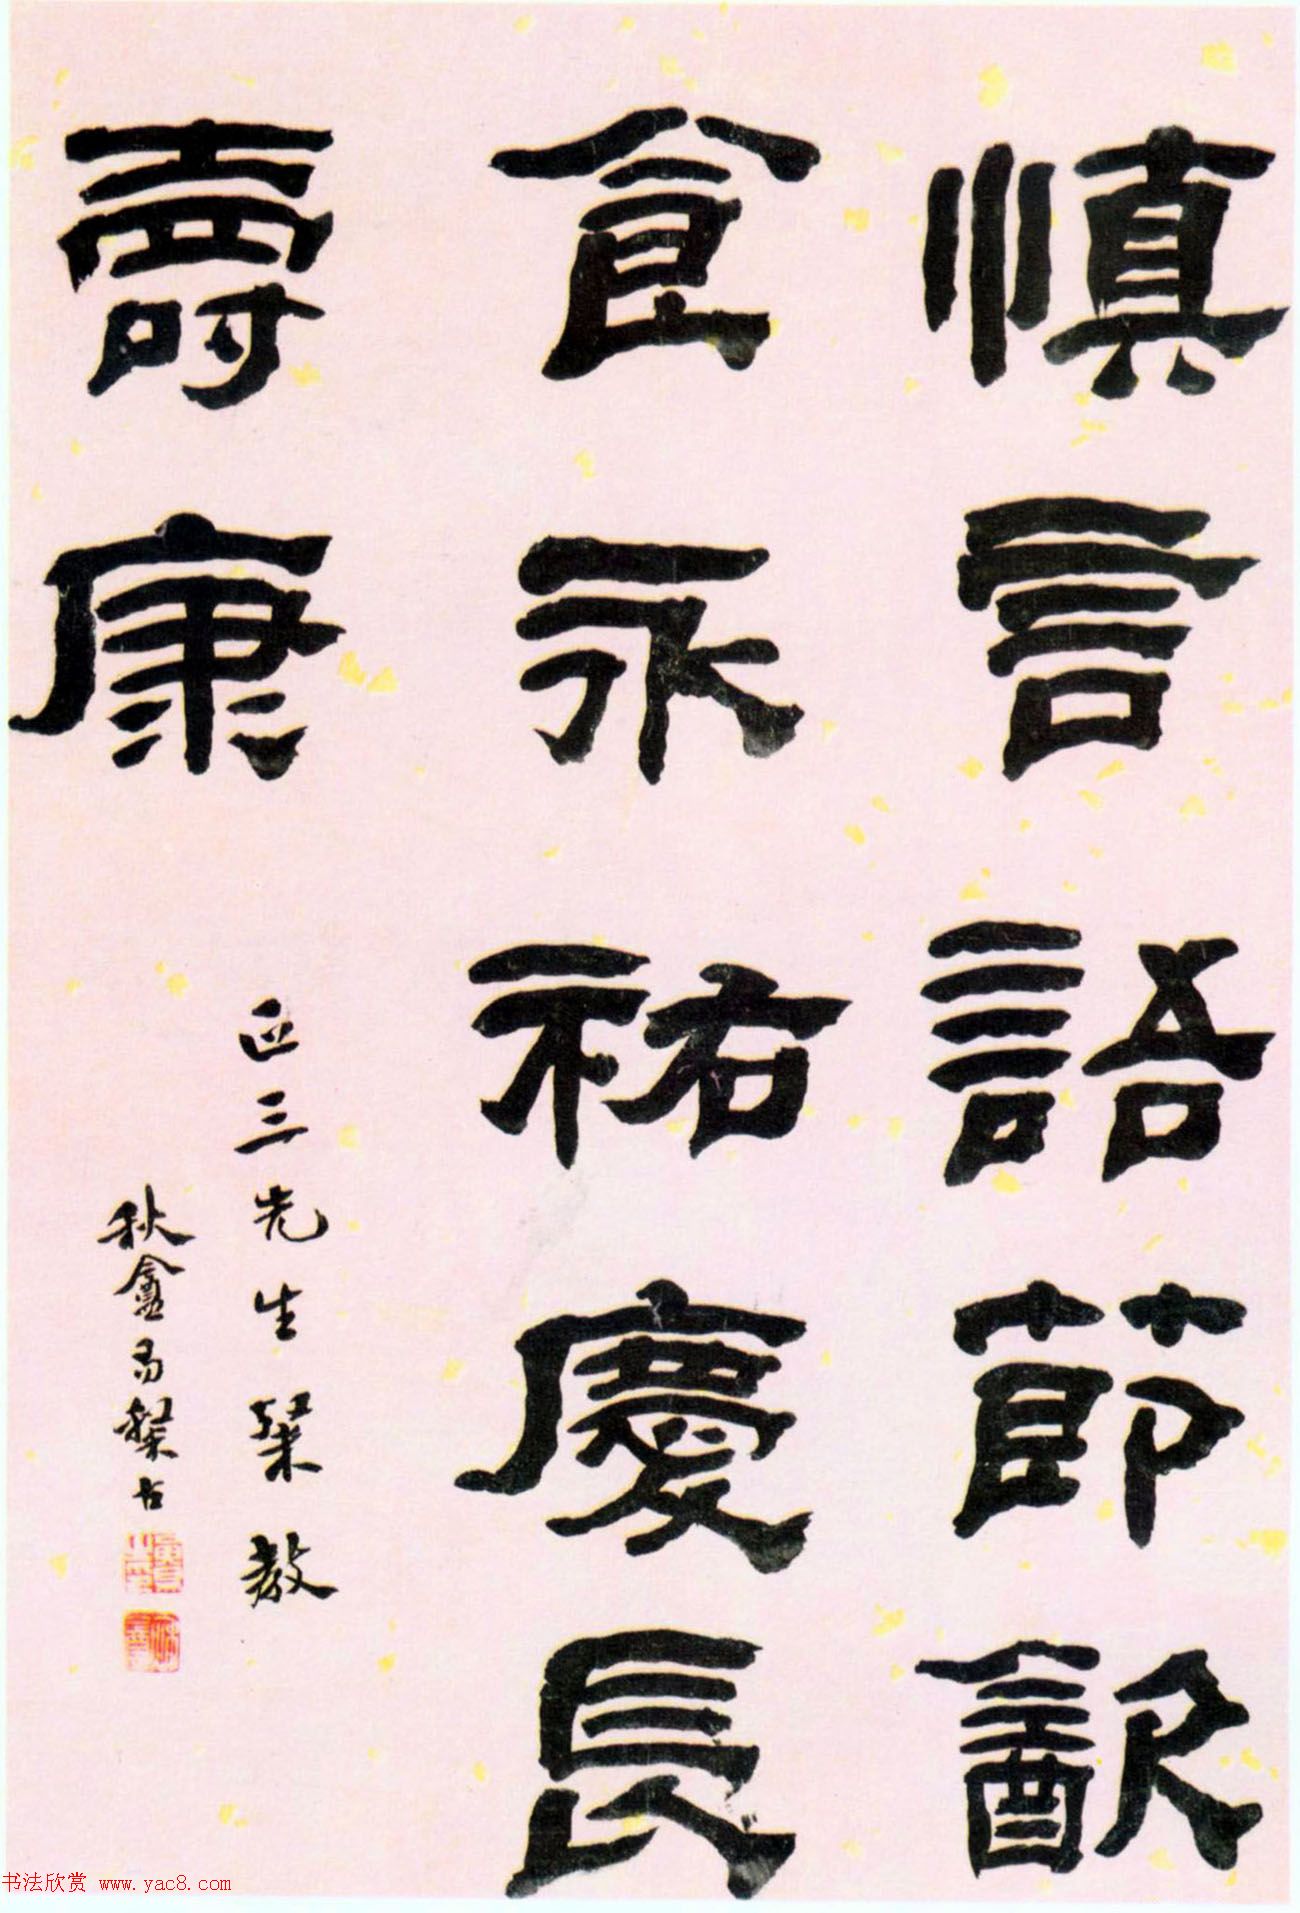 慎言語節㱃
食永祐慶長
壽康
匹三先生棐教
秋盦易棃
书法欣赏 www.yac8.com